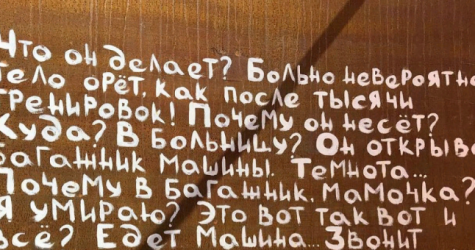 Что он делает? Больно невероятно
Тело орёт, как после тысячи
тренировок! Почему он несёт?
Куда? В больницу? Он открыва
багажник машины. Темнота...
Почему в багажник. Мамочка?
Я умираю? Это вот так вот и
всё? Едет машина... Звонит